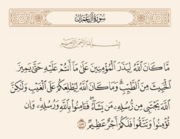 سورة آل عمران
بسم الله الرحمن الرحيم
ما كان الله ليذر المؤمنين على ما أنتم عليه حتى يميز
الخبيث من الطيب وما كان الله ليطلعكم على الغيب ولكن
الله يجتبي من رسله من يشاء فآمنوا بالله ورسله وإن
تؤمنوا وتتقوا فلكم أجر عظيم